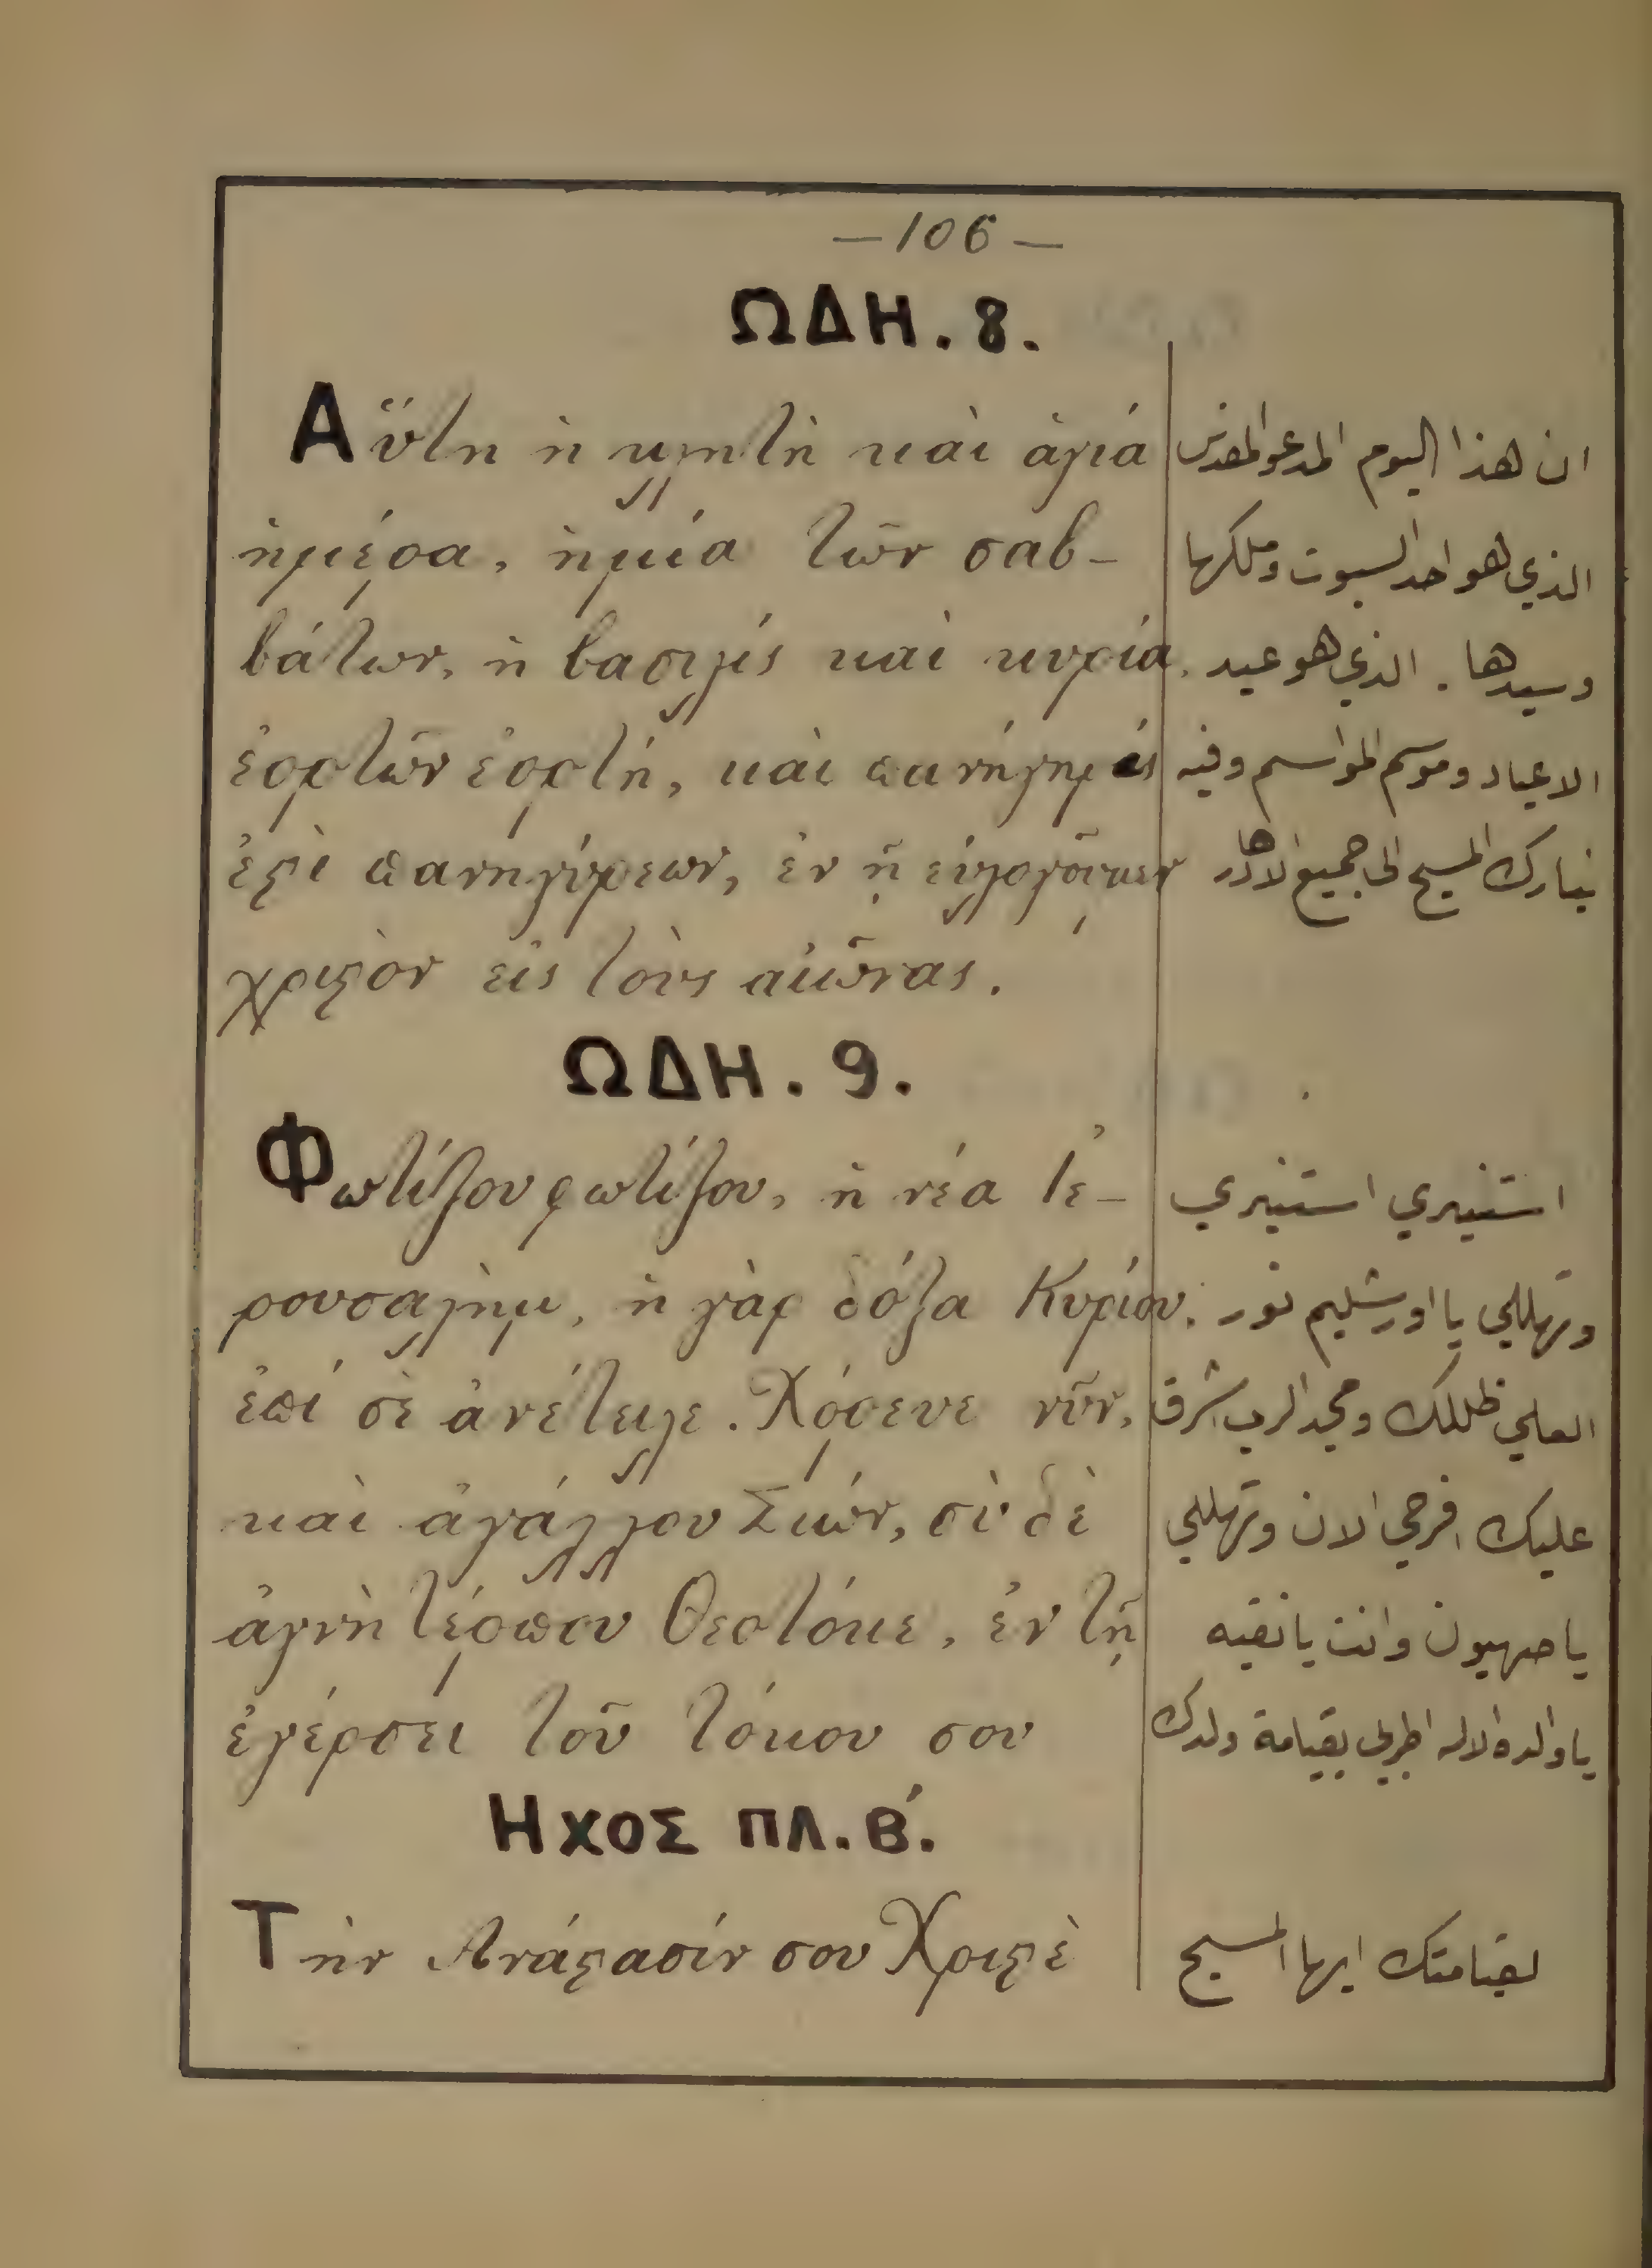 —106—
ΩΔΗ. 8.
Αὕτη ἡ κλητὴ καὶ ἁγιά
ἡμέρα, ἡ μία τῶν σαβ-
βάτων, ἡ βασιλίς καὶ κυρία.
ἑορτῶν ἑορτή, καὶ πανήγηρις
ἐςὶ πανηγύρεων, ἐν ᾗ εὐλογοῦμεν
χριςὸν εἰς τοὺς αἰῶνας.
ان هذا اليوم المدعو المقدس
الذي هو احد السبوت وملكها
وسيدها . الذي هو عيد
الاعياد وموسم المواسم وفيه
نبارك المسيح الى جميع الادهار
ΩΔΗ. 9.
Φωτίζου φωτίζου, ἡ νέα Ἰε-
ρουσαλὴμ, ἡ γὰρ δόξα Κυρίου.
ἐπί σὲ ἀνέτειλε. Χόρευε νῦν,
καὶ ἀγάλλου Σιών, σὺ δὲ
ἁγνὴ τέρπου Θεοτόκε, ἐν τῇ
ἐγέρσει τοῦ τόκου σου
استنيري استنيري
وتهللي يا اورشليم نور
العلي ظللك ومجد الرب اشرق
عليك افرحي الان وتهللي
يا صهيون وانت يا نقيه
يا والدة الاله اطربي بقيامة ولدك
ΗΧΟΣ ΠΛ. Β΄.
Τὴν Ἀνάςασίν σου Χριςὲ
لقيامتك ايها المسيح